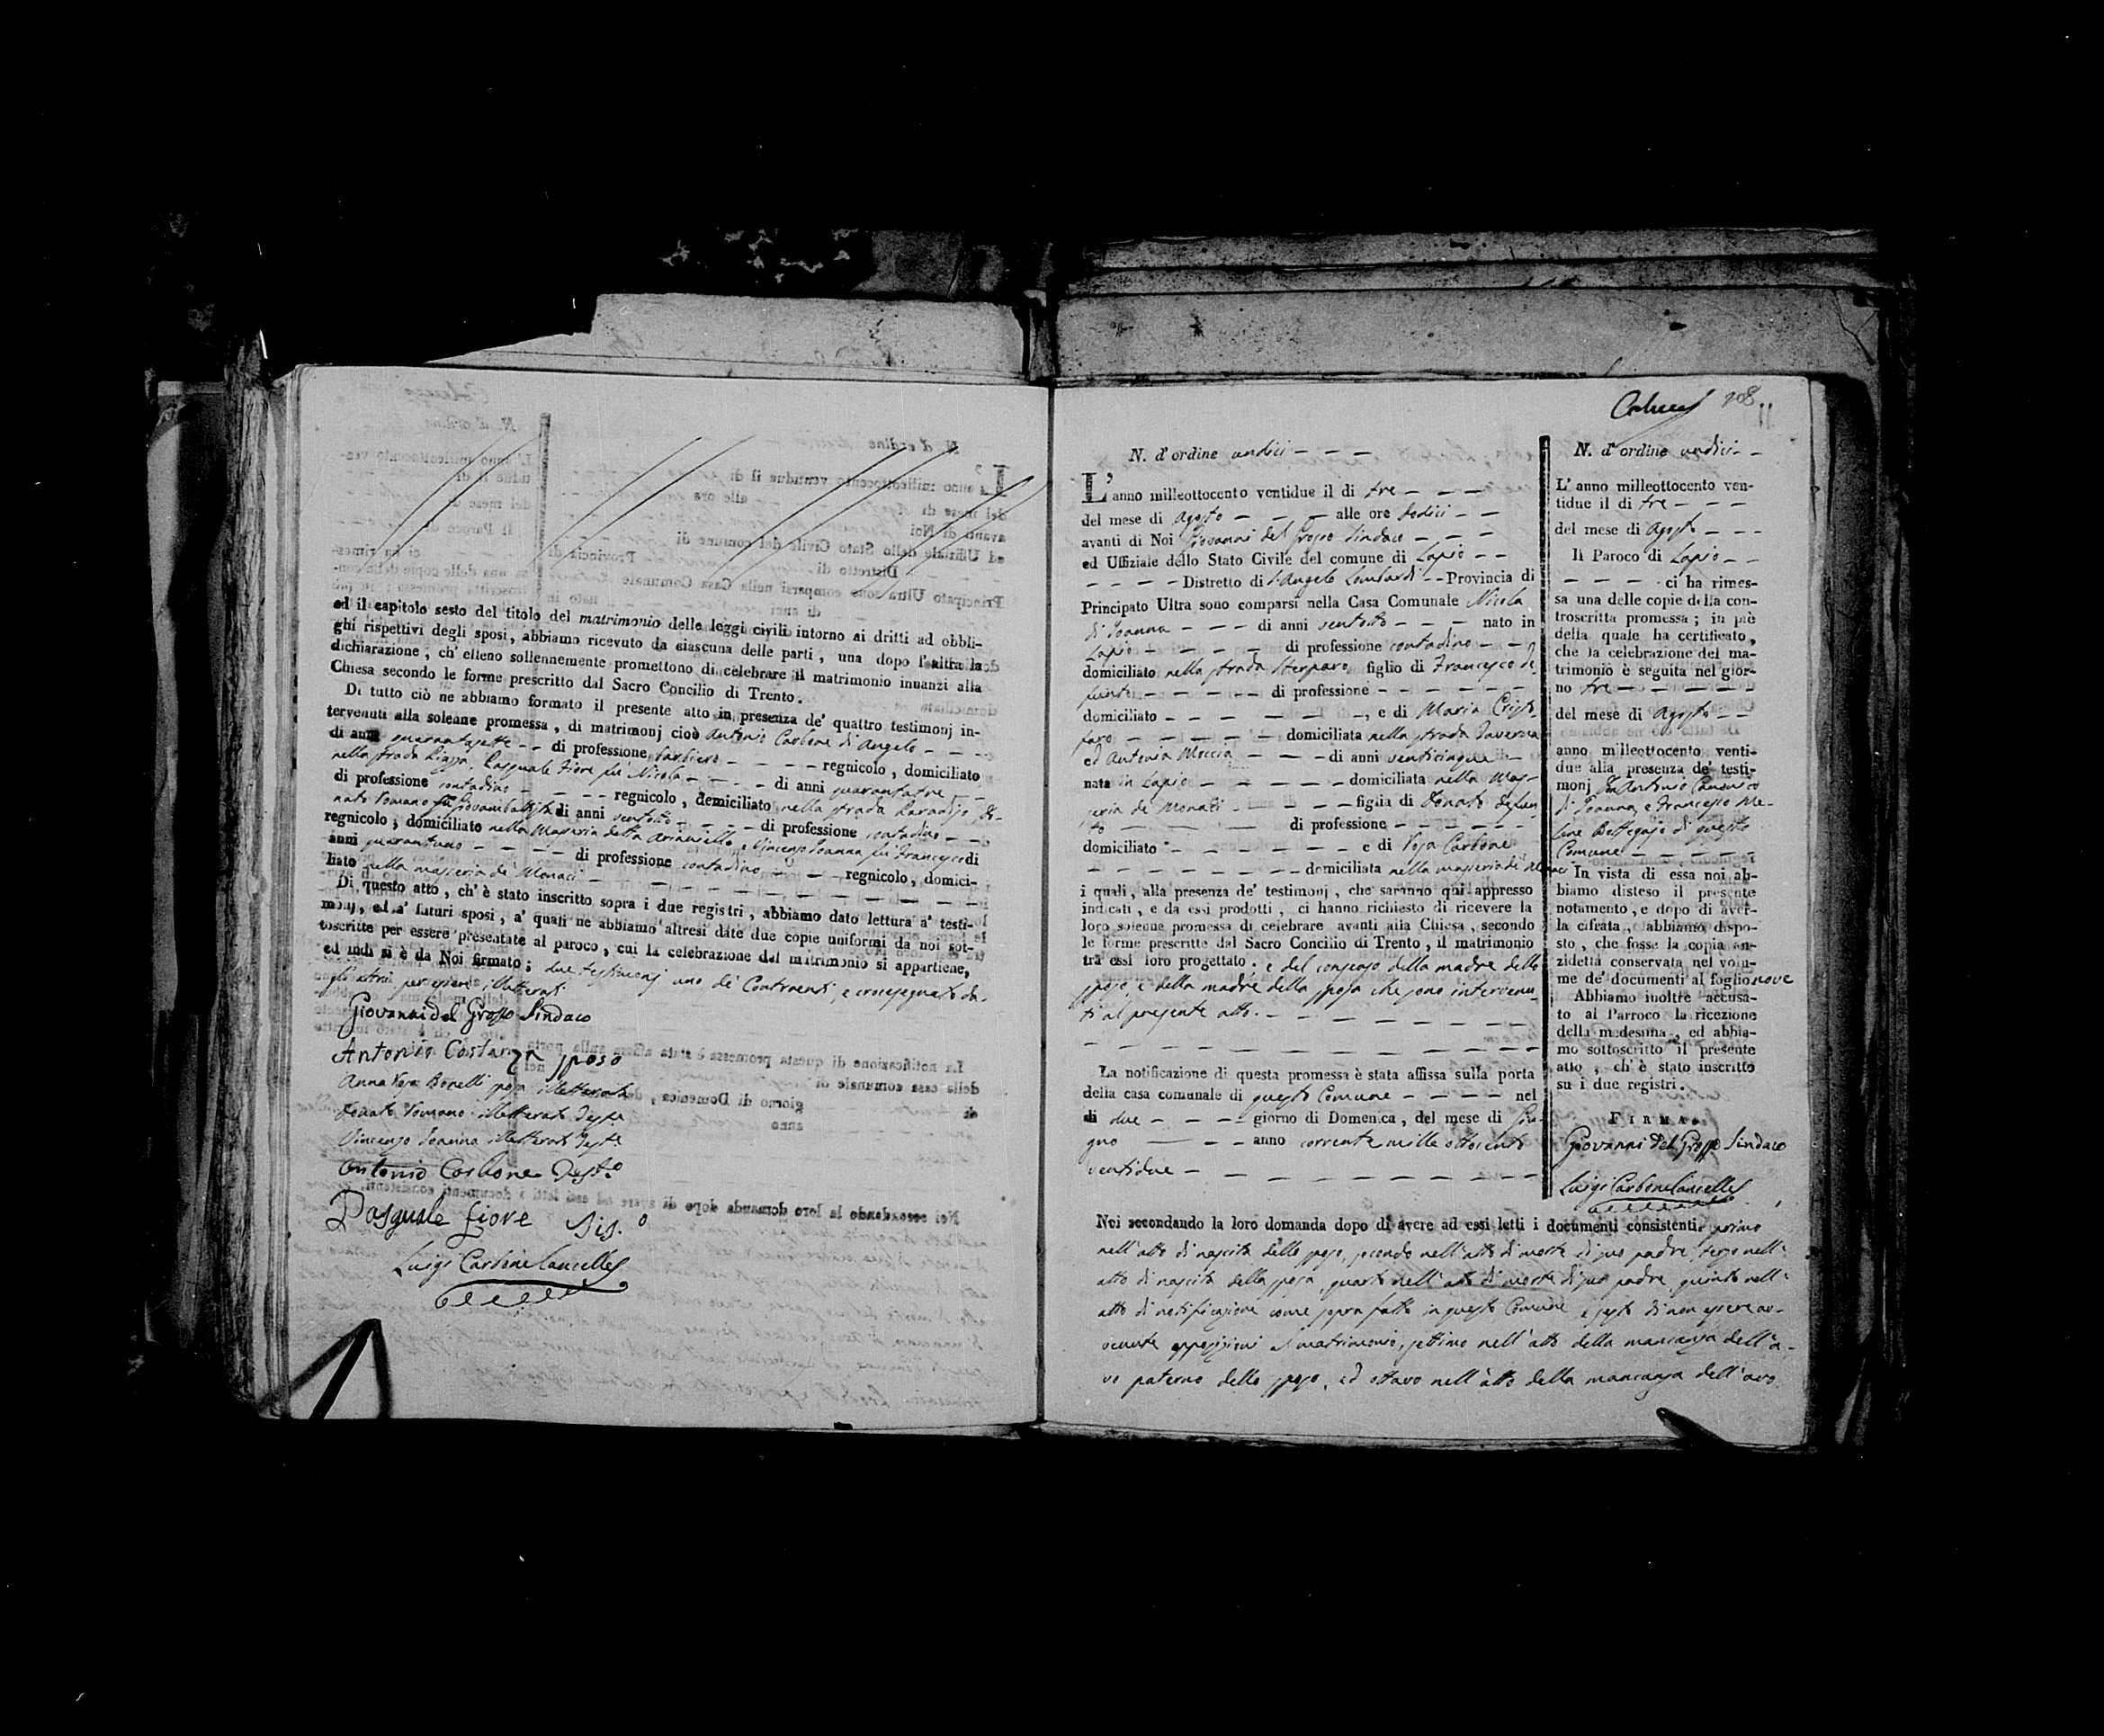 ed il capitolo sesto del titolo del matrimonio delle leggi civili intorno ai dritti ad obbli-
ghi rispettivi degli sposi, abbiamo ricevuto da ciascuna delle parti, una dopo l'altra la
dichiarazione, ch' elleno sollennemente promettono di celebrare il matrimonio innanzi alla
Chiesa secondo le forme prescritto dal Sacro Concilio di Trento.
Di tutto ciò ne abbiamo formato il presente atto in presenza de' quattro testimonj in-
tervenuti alla solenne promessa, di matrimonj cioè Antonio Carbone di Angelo - - -
di anni quarantasette - - di professione barbiero - - - - regnicolo, domiciliato
nella strada Piazza, Pasquale Fiore fu Nicola - - - - di anni quarantatre - -
di professione contadino - - - - regnicolo, domiciliato nella strada Paradiso, Do-
nato Romano fu Giovambattista di anni ventotto - - - - di professione contadino - -
regnicolo, domiciliato nella Masseria detta Arianiello, e Vincenzo Joanna fu Francesco di
anni quarantuno - - - - di professione contadino - - - regnicolo, domici-
liato nella masseria de' Monaci - - - - - - - - -
Di questo atto, ch' è stato inscritto sopra i due registri, abbiamo dato lettura a' testi-
monj, ed a' futuri sposi, a' quali ne abbiamo altresì date due copie uniformi da noi sot-
toscritte per essere presentate al paroco, cui la celebrazione del matrimonio si appartiene,
ed indi si è da Noi firmato; due testimonj uno de' Contraenti, e crocesegnato da-
gli altri per essere illetterati
Giovanni del Grosso Sindaco
Antonio Costanza sposo
Anna Rosa Bonelli sposa illetterata
Donato Romano illetterato Test.e
Vincenzo Joanna illetterato Test.e
Antonio Carbone Test.o
Pasquale fiore
Luigi Carbone Cancell.
108
N. d' ordine undici - - -
L' anno milleottocento ventidue il di tre - - -
del mese di Agosto - - - alle ore dodici - -
avanti di Noi Giovanni del Grosso Sindaco - - -
ed Uffiziale dello Stato Civile del comune di Lapio - -
- - - - Distretto di S. Angelo Lombardi - - Provincia di
Principato Ultra sono comparsi nella Casa Comunale Nicola
di Joanna - - - di anni ventotto - - - nato in
Lapio - - - - - di professione contadino - -
domiciliato nella strada Sterparo figlio di Francesco de-
funto - - - - - di professione - - - - - -
domiciliato - - - - - - -, e di Maria Cristo-
faro - - - - - domiciliata nella strada Taverna
ed Antonia Moccia - - - di anni venticinque -
nata in Lapio - - - - - domiciliata nella Mas-
seria de' Monaci - - - - - figlia di Donato defun-
to - - - di professione - - - - - -
domiciliato - - - - - - - e di Rosa Carbone
- - - - - - - - - domiciliata nella masseria de' Monaci
i quali, alla presenza de' testimonj, che saranno qui appresso
indicati, e da essi prodotti, ci hanno richiesto di ricevere la
loro solenne promessa di celebrare avanti alla Chiesa, secondo
le forme prescritte dal Sacro Concilio di Trento, il matrimonio
tra essi loro progettato; e del consenso della madre dello
sposo, e della madre della sposa che sono intervenu-
ti al presente atto. - - - - - - - -
La notificazione di questa promessa è stata affissa sulla porta
della casa comunale di questo Comune - - - - nel
dì due - - - - giorno di Domenica, del mese di Giu-
gno - - - anno corrente mille ottocento
ventidue - - - - - - - - - -
N. d' ordine undici - -
L' anno milleottocento ven-
tidue il di tre - - -
del mese di Agosto - - -
Il Paroco di Lapio - -
- - - - ci ha rimes-
sa una delle copie della con-
troscritta promessa; in piè
della quale ha certificato,
che la celebrazione del ma-
trimonio è seguita nel gior-
no tre - - - - -
del mese di Agosto - -
anno milleottocento venti-
due alla presenza de' testi-
monj D. Antonio Canonico
di Joanna, e Francesco Me-
Bottegajo di questo
Comune - - - - -
In vista di essa noi ab-
biamo disteso il presente
notamento, e dopo di aver-
la cifrata, abbiamo dispo-
sto, che fosse la copia an-
zidetta conservata nel volu-
me de' documenti al foglio nove
Abbiamo inoltre accusa-
to al Parroco la ricezione
della medesima, ed abbia-
mo sottoscritto il presente
atto, ch' è stato inscritto
su i due registri.
FIRMA.
Giovanni del Grosso Sindaco
Luigi Carbone Cancell.
Noi secondando la loro domanda dopo di avere ad essi letti i documenti consistenti, primo
nell' atto di nascita dello sposo, secondo nell' atto di morte di suo padre, terzo nell'
atto di nascita della sposa, quarto nell' atto di morte di suo padre, quinto nell'
atto di notificazione come sopra fatto in questo Comune, e sesto di non essere av-
venute opposizioni al matrimonio, settimo nell' atto della mancanza dell' a-
vo paterno dello sposo, ed ottavo nell' atto della mancanza dell' avo